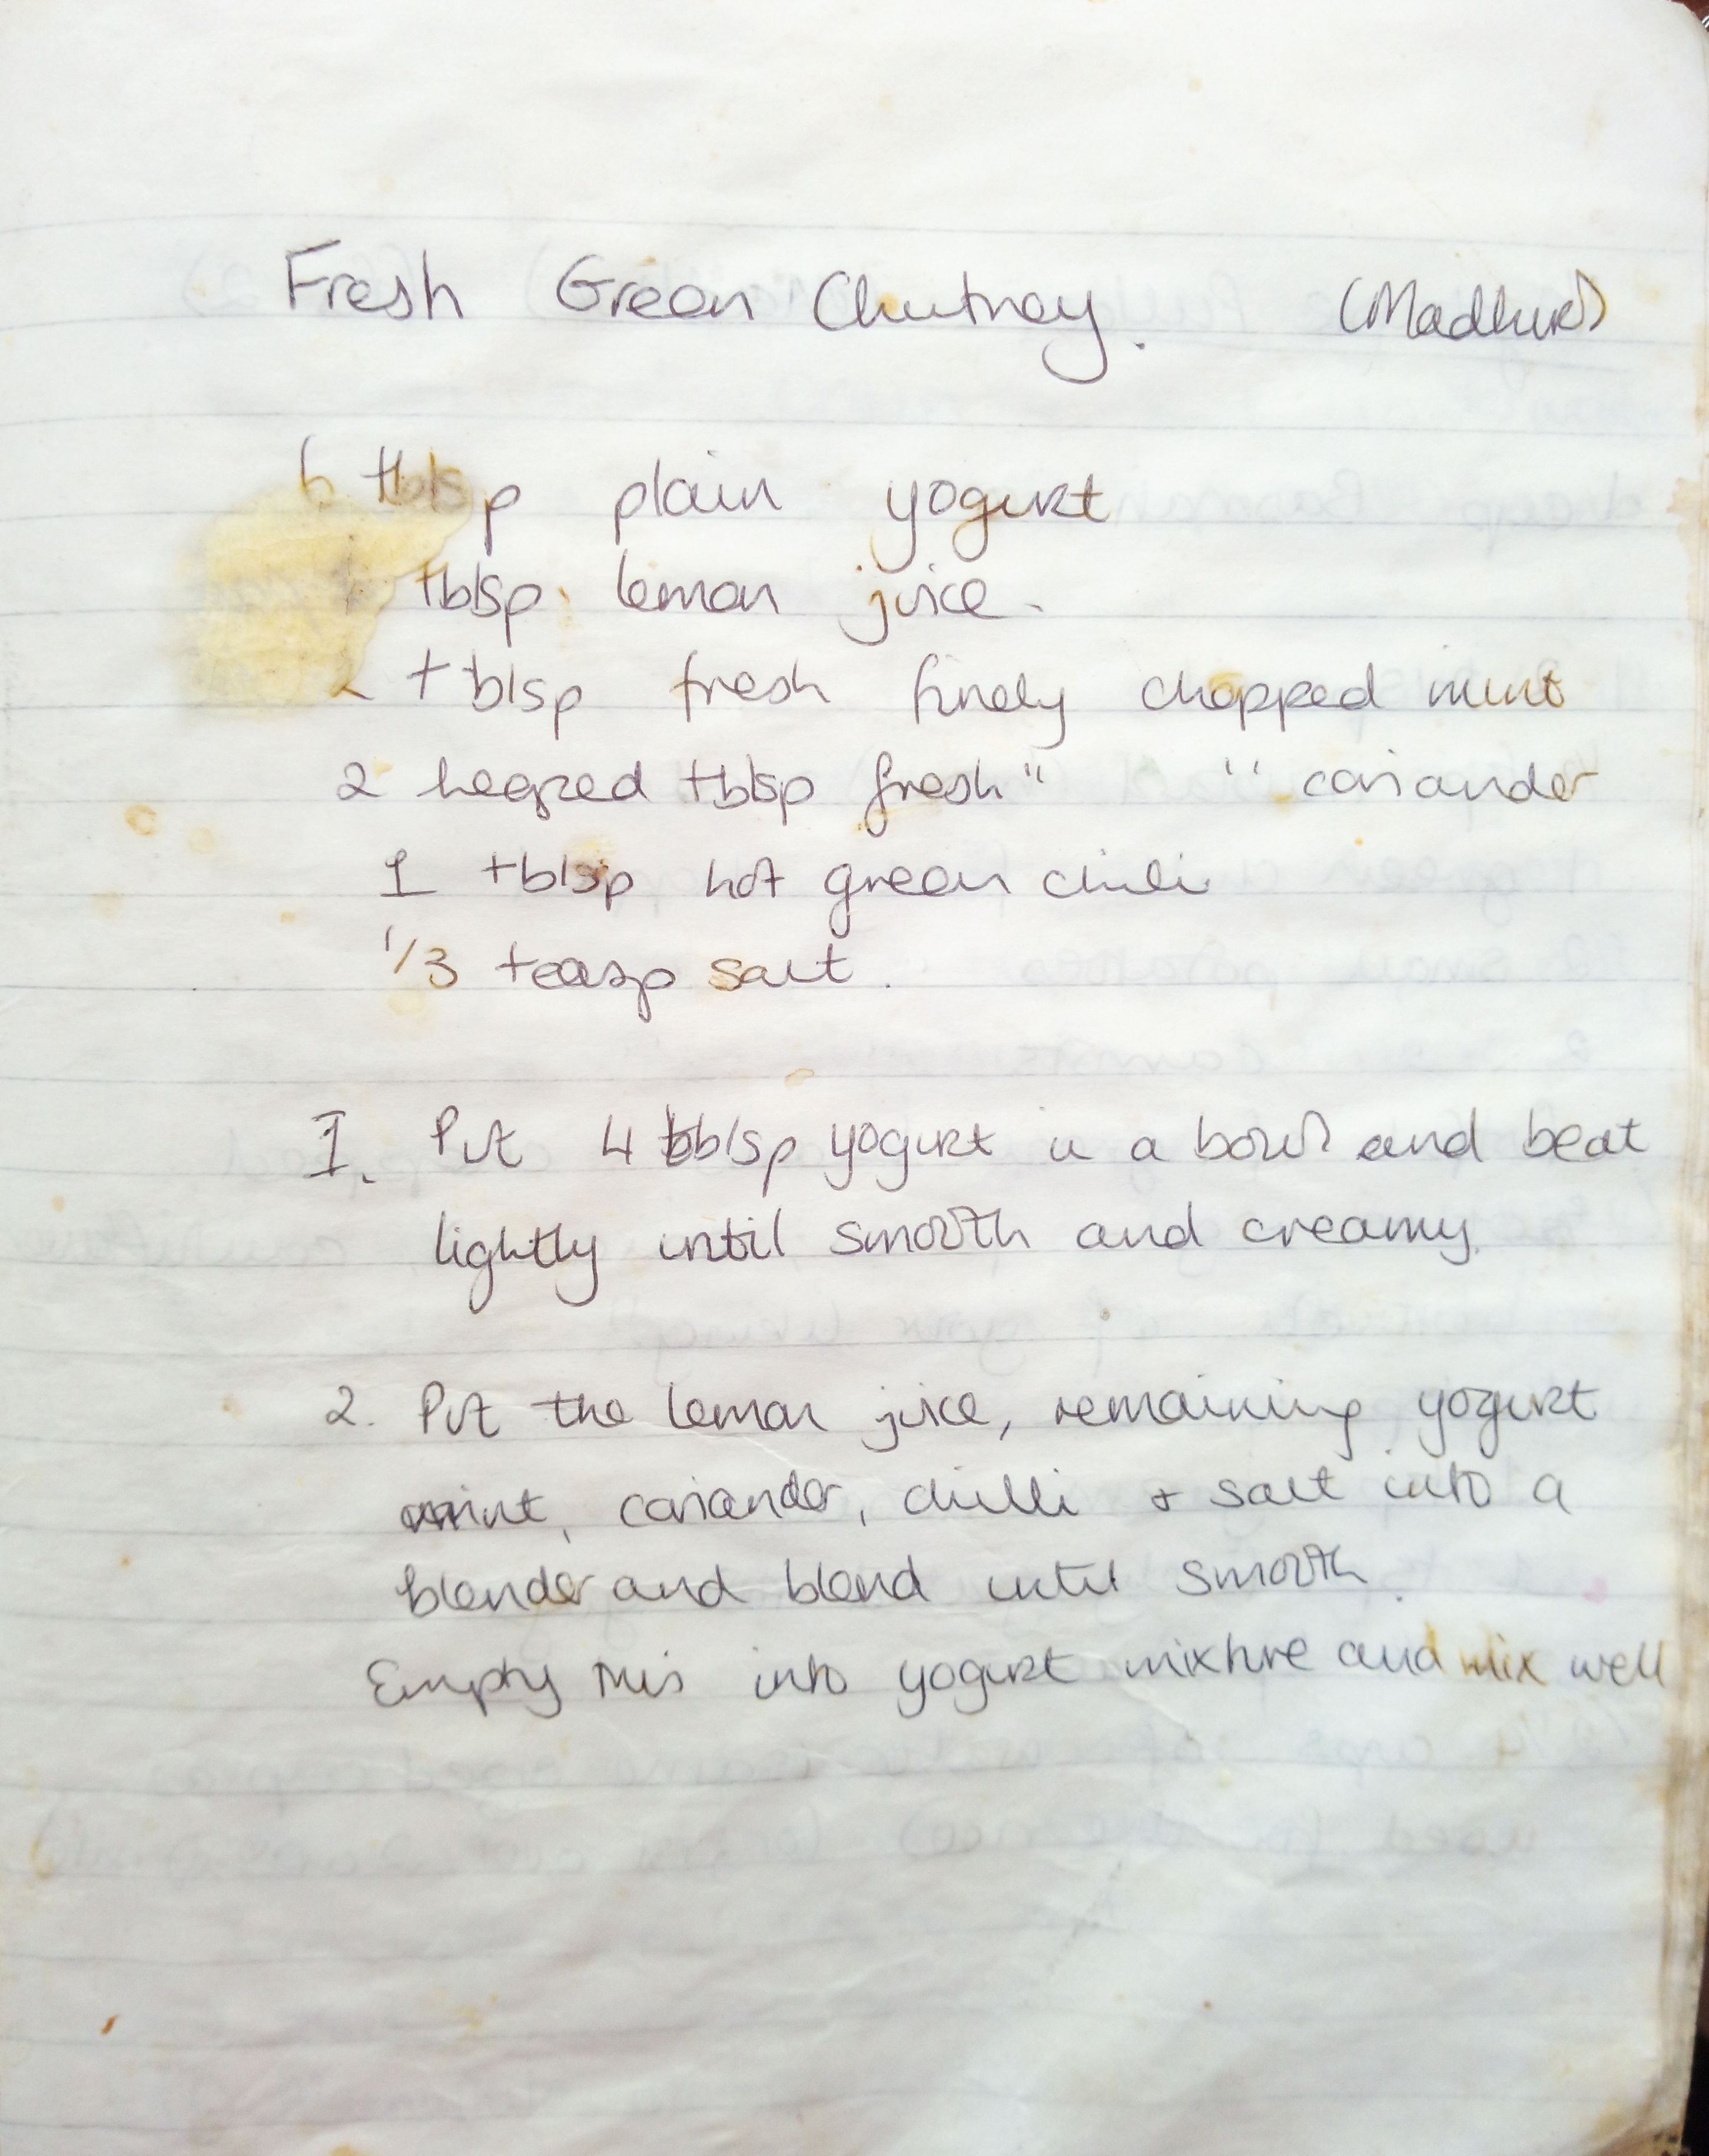 Fresh Green Chutney. (Madhur)
6 tblsp plain yogurt
tblsp lemon juice.
2 tblsp fresh finely chopped mint
2 heaped tblsp fresh " " coriander
1 tblsp hot green chili
1/3 teasp salt.
1. Put 4 tblsp yogurt in a bowl and beat
lightly until smooth and creamy.
2. Put the lemon juice, remaining yogurt
mint, coriander, chilli + salt into a
blender and blend until smooth.
Empty this into yogurt mixture and mix well